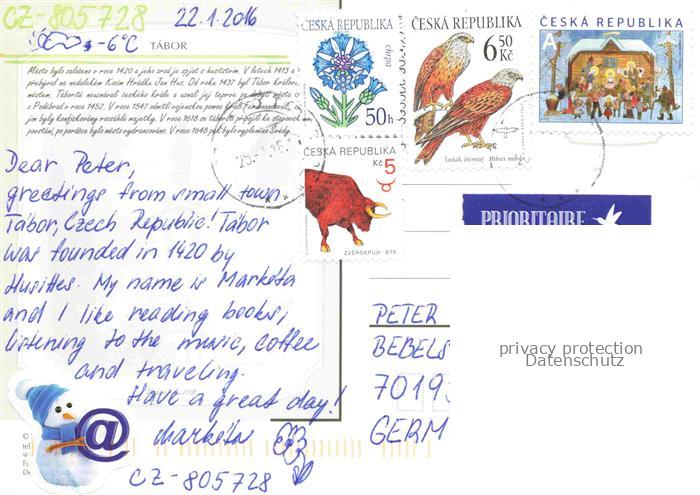 CZ-805728
22.1.2016
-6°C
TÁBOR
Město bylo založeno v roce 1420 a jeho zrod je spjat s husitstvím. V letech 1413 a
přebýval na nedalekém Kozím Hrádku Jan Hus. Od roku 1437 byl Tábor králov
městem. Táborité neuznávali českého krále a uznali jej teprve po dobytí města
z Poděbrad v roce 1452. V roce 1547 odmítli vojenskou pomoc králi Ferdinandovi
jim byly konfiskovány rozsáhlé majetky. V roce 1618 se táborští připojili ke stavovsk
povstání, po porážce bylo město vydrancováno. V roce 1648 pak bylo vypleněno Švédy.
Dear Peter,
greetings from small town
Tábor, Czech Republic! Tábor
was founded in 1420 by
Husites. My name is Markéta
and I like reading books,
listening to the music, coffee
and traveling.
Have a great day!
Markéta
CZ-805728
@
ČESKÁ REPUBLIKA
chrpa
50h
ČESKÁ REPUBLIKA
6 50 Kč
Luňák červený Milvus milvus
ČESKÁ REPUBLIKA
A
ČESKÁ REPUBLIKA
Kč 5
ZVĚROKRUH - BÝK
PRIORITAIRE
PETER
BEBELS
70193
GERM
privacy protection
Datenschutz